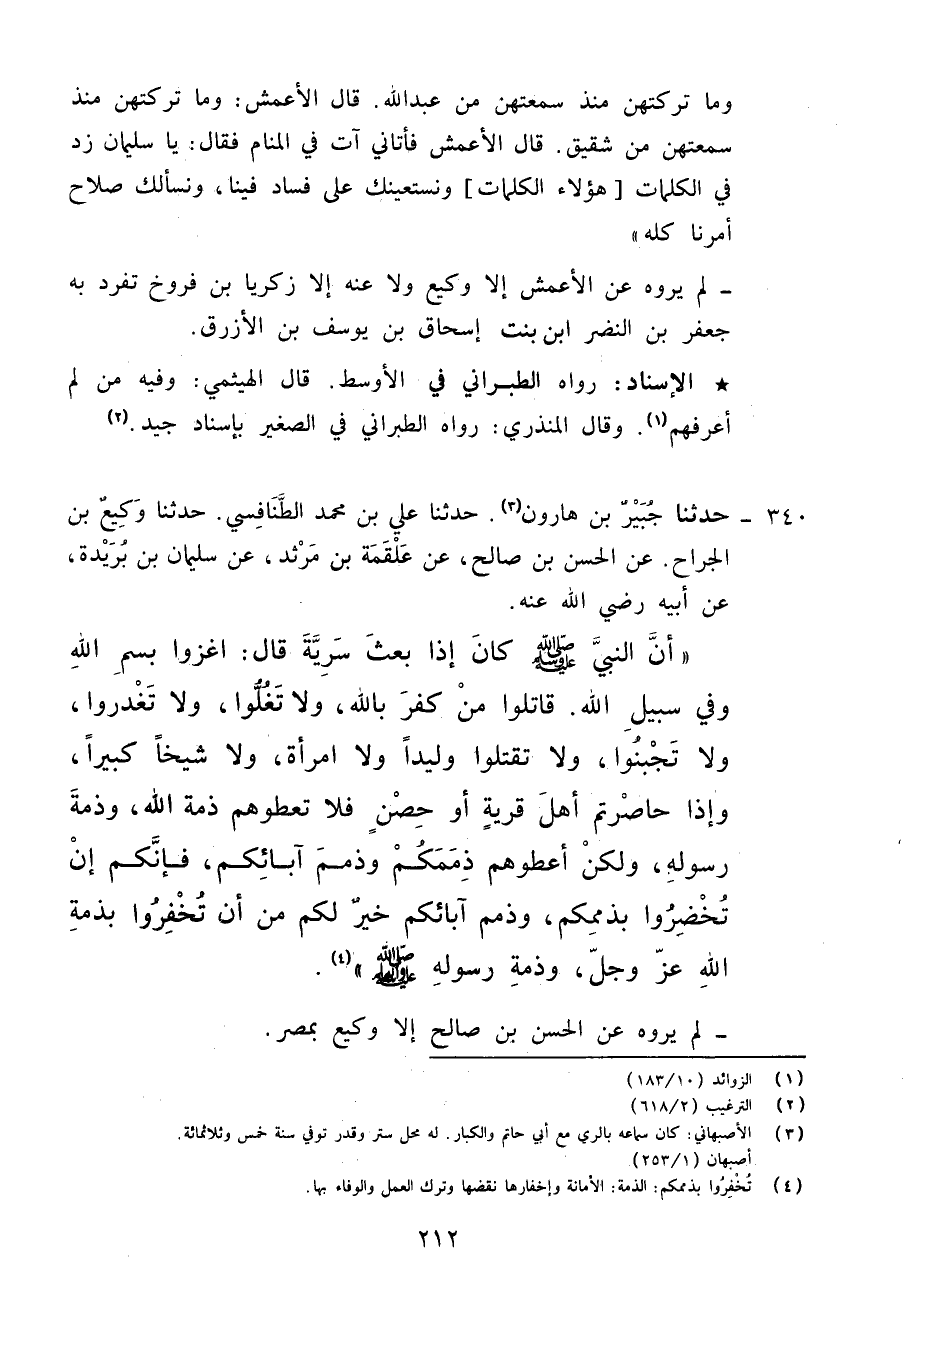 وما تركتهن منذ سمعتهن من عبدالله. قال الأعمش: وما تركتهن منذ
سمعتهن من شقيق. قال الأعمش فأتاني آت في المنام فقال: يا سليمان زد
في الكلمات [هؤلاء الكلمات] ونستعينك على فساد فينا، ونسألك صلاح
أمرنا كله»
ـ لم يروه عن الأعمش إلا وكيع ولا عنه إلا زكريا بن فروخ تفرد به
جعفر بن النضر ابن بنت إسحاق بن يوسف بن الأزرق.
★ الإسناد: رواه الطبراني في الأوسط. قال الهيثمي: وفيه من لم
أعرفهم(١). وقال المنذري: رواه الطبراني في الصغير بإسناد جيد.(٢)
٣٤٠ ـ حدثنا جُبَيْرٌ بن هارون(٣). حدثنا علي بن محمد الطَّنَافِسي. حدثنا وَكِيعٌ بن
الجراح. عن الحسن بن صالح، عن عَلْقَمَة بن مَرْثد، عن سليمان بن بُرَيْدة،
عن أبيه رضي الله عنه.
«أنَّ النبيَّ ﷺ كانَ إذا بعثَ سَرِيَّةَ قال: اغزوا بسمِ اللهِ
وفي سبيلِ الله. قاتلوا منْ كفرَ بالله، ولا تَغُلُّوا، ولا تَغْدروا،
ولا تَجْبنُوا، ولا تقتلوا وليداً ولا امرأة، ولا شيخاً كبيراً،
وإذا حاصْرتم أهلَ قريةٍ أو حِصْنٍ فلا تعطوهم ذمة الله، وذمةَ
رسولهِ، ولكنْ أعطوهم ذِمَمَكُمْ وذممَ آبائكم، فإنَّكم إنْ
تُخْضِرُوا بذممكم، وذمم آبائكم خيرٌ لكم من أن تُخْفِرُوا بذمةِ
اللهِ عزّ وجلّ، وذمةِ رسولهِ ﷺ»(٤).
ـ لم يروه عن الحسن بن صالح إلا وكيع بمصر.
(١) الزوائد (١٨٣/١٠)
(٢) الترغيب (٦١٨/٢)
(٣) الأصبهاني: كان سماعه بالري مع أبي حاتم والكبار. له محل ستر وقدر توفي سنة خمس وثلاثمائة.
أصبهان (٢٥٣/١)
(٤) تُخْفِرُوا بذممكم: الذمة: الأمانة وإخفارها نقضها وترك العمل والوفاء بها.
٢١٢